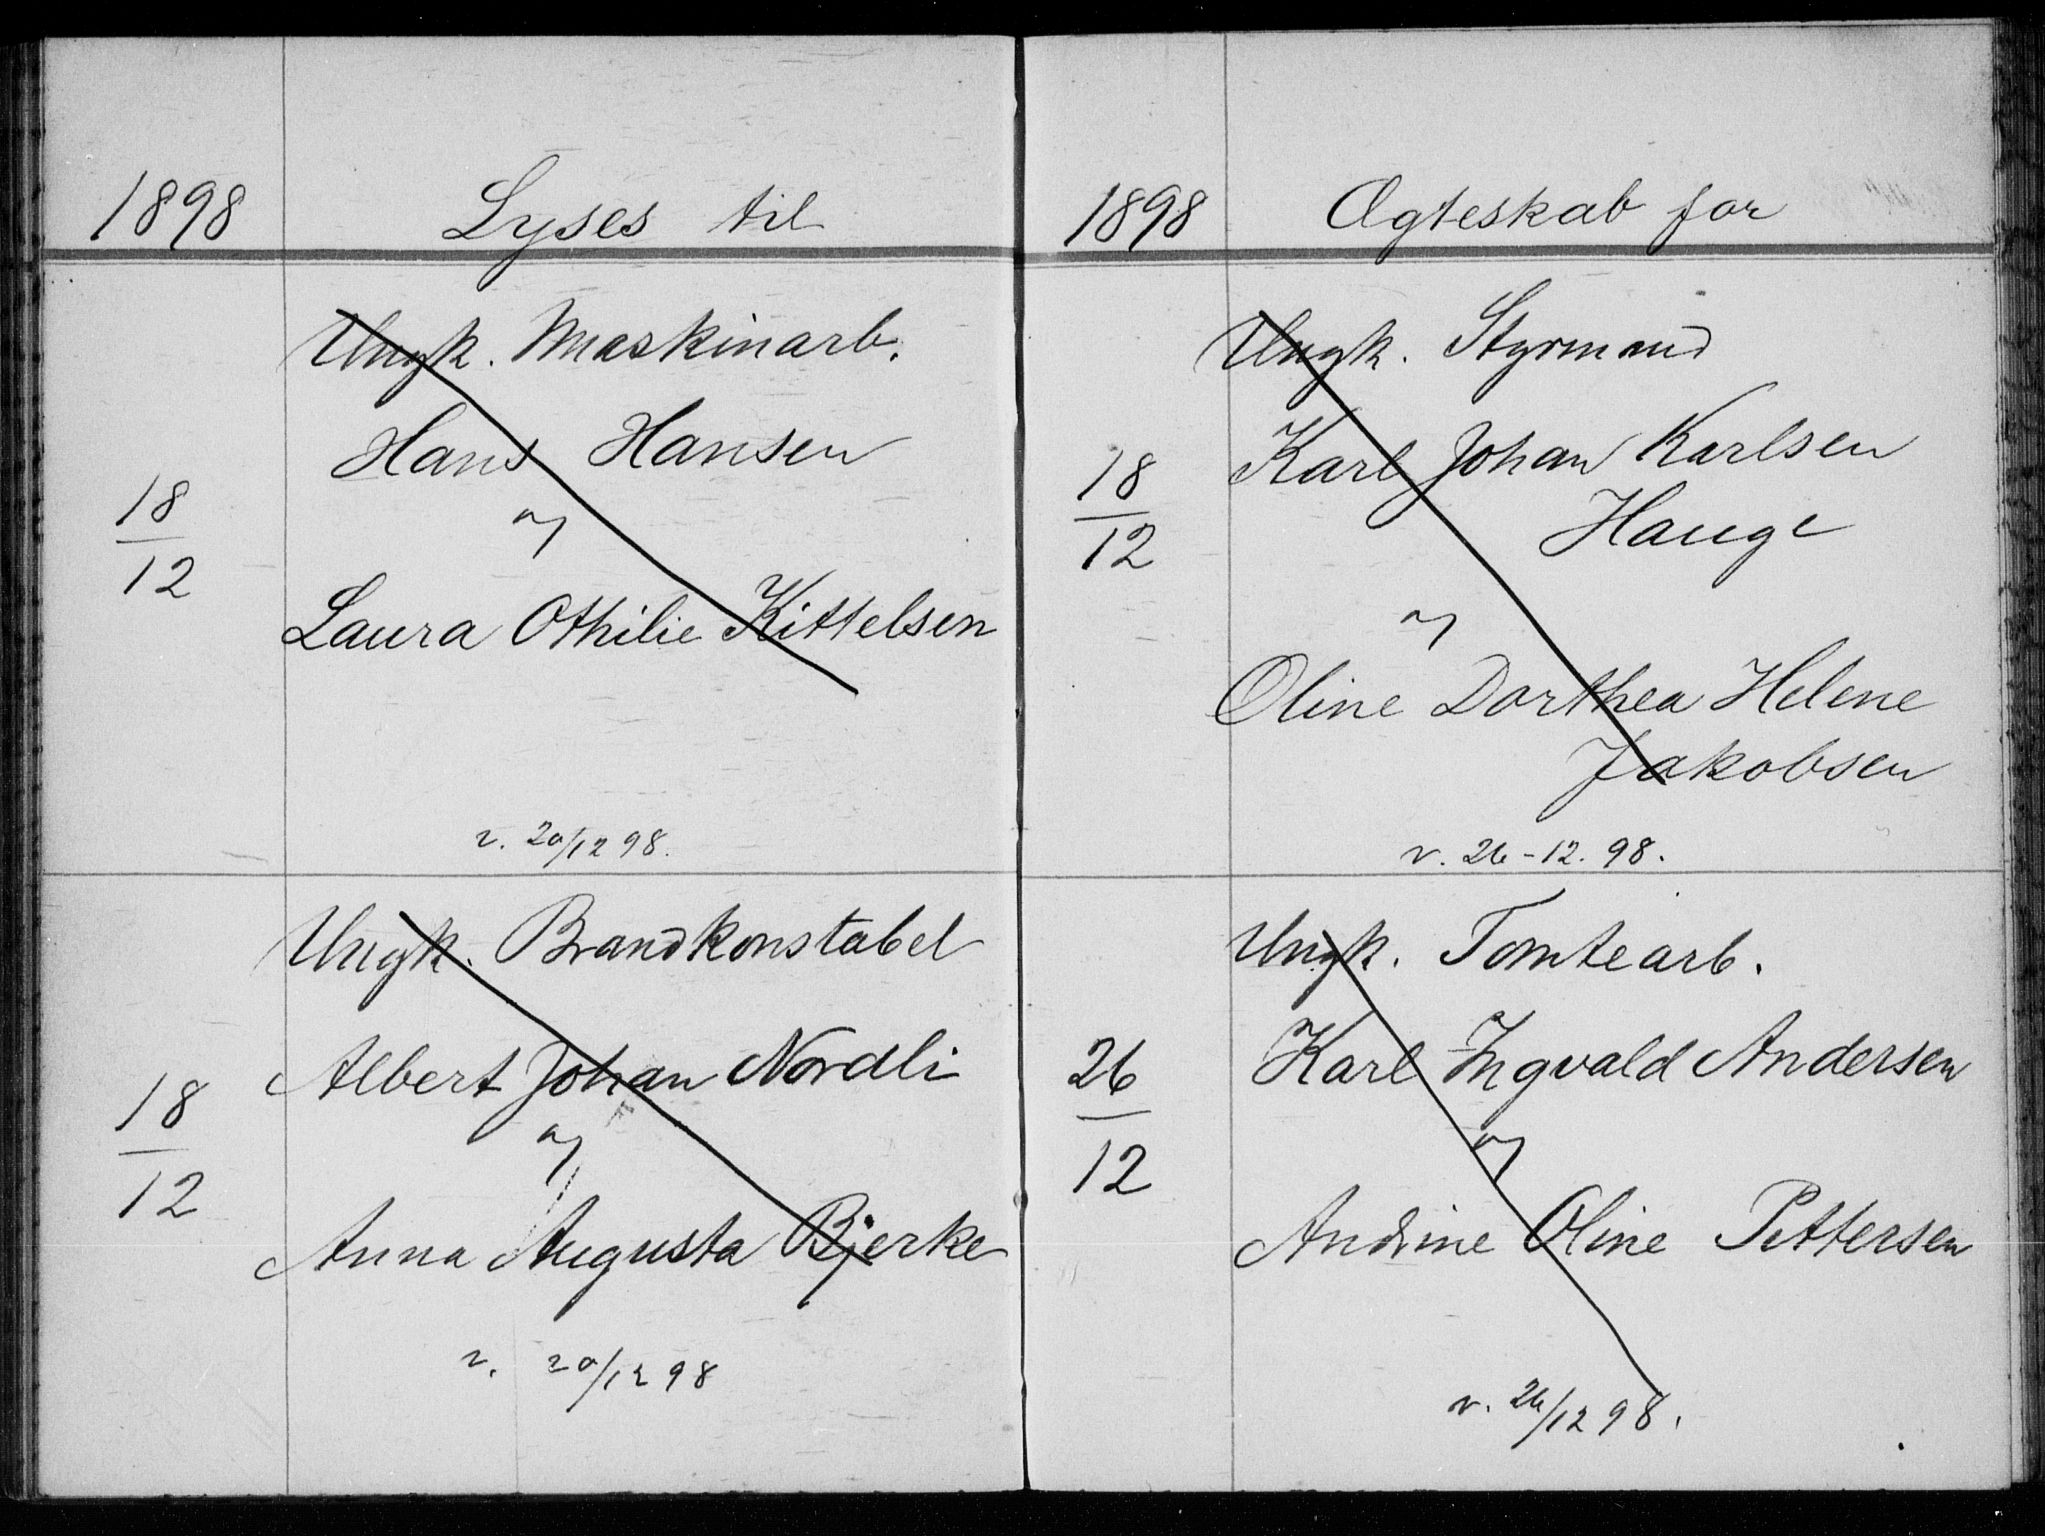 1898 Lyses til
Ungk. Maskinarb.
Hans Hansen
18
12
og
Laura Othilie Kittelsen
v. 20/12 98.
Ungk. Brandkonstabel
Albert Johan Nordli
18
12
og
Anna Augusta Bjerke
v. 20/12 98
1898 Ægteskab for
Ungk. Styrmand
Karl Johan Karlsen
Hauge
18
12
og
Oline Dorthea Helene
Jakobsen
v. 26-12. 98.
Ungk. Tomtearb.
Karl Ingvald Andersen
26
12
og
Andrine Oline Pettersen
v. 26/12 98.